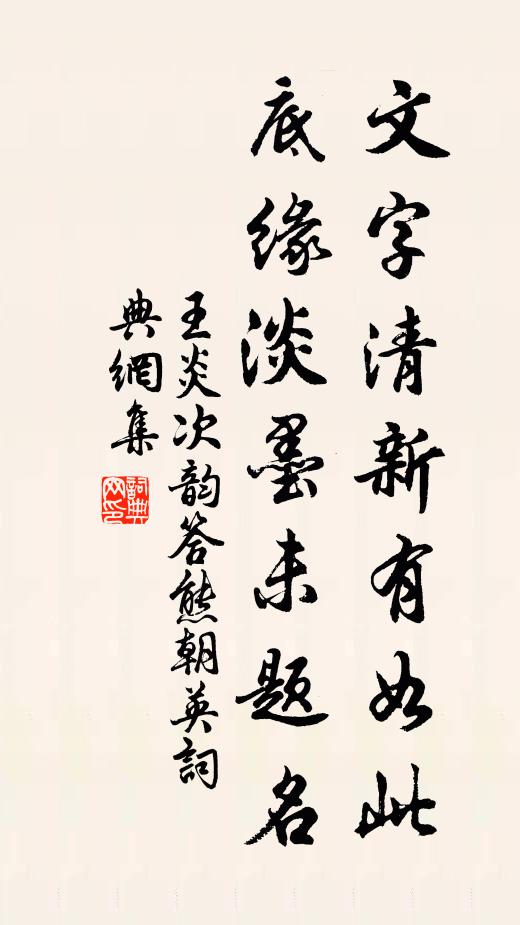 文字清新有如此
底缘淡墨未题名
王炎次韵答熊朝英詞
典網集
詞典
网印